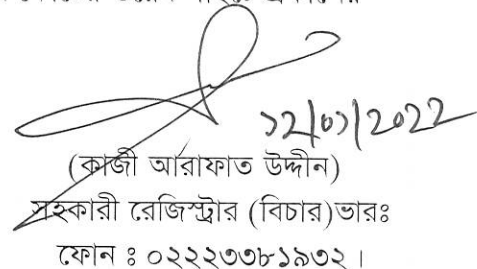 ১২/০১/২০২২
(কাজী আরাফাত উদ্দীন)
সহকারী রেজিস্ট্রার (বিচার)ভারঃ
ফোন ঃ ০২২২৩৩৮১৯৩২।